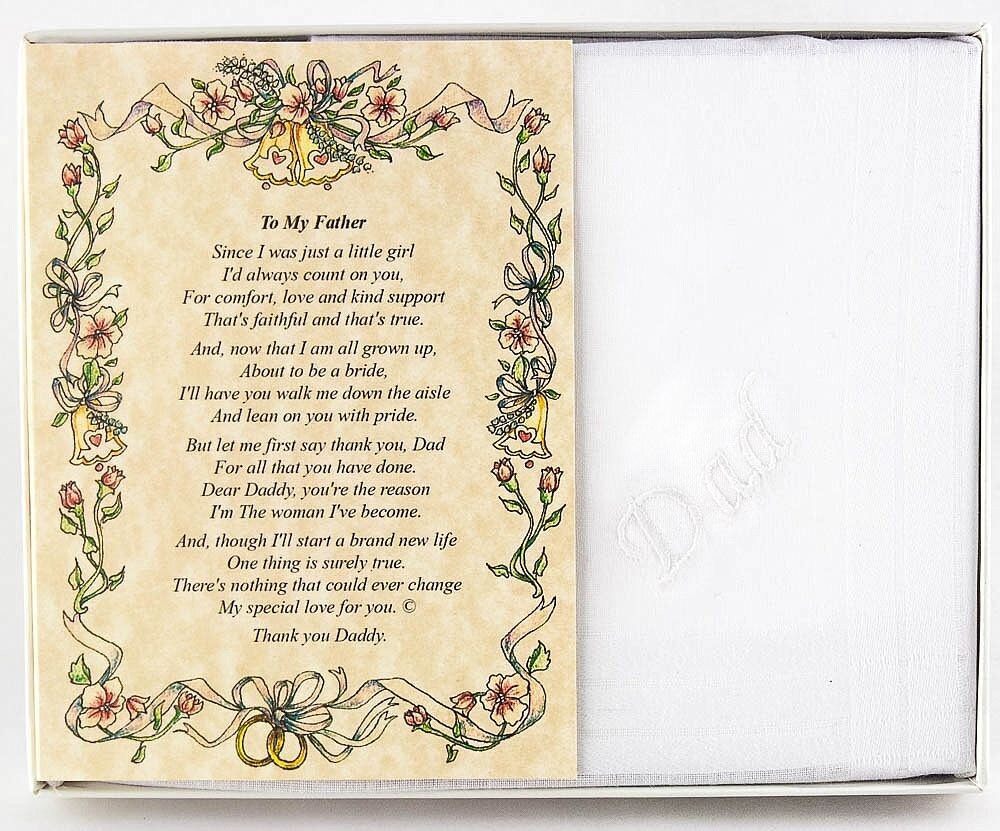 To My Father
Since I was just a little girl
I'd always count on you,
For comfort, love and kind support
That's faithful and that's true.
And, now that I am all grown up,
About to be a bride,
I'll have you walk me down the aisle
And lean on you with pride.
But let me first say thank you, Dad
For all that you have done.
Dear Daddy, you're the reason
I'm The woman I've become.
And, though I'll start a brand new life
One thing is surely true.
There's nothing that could ever change
My special love for you. ©
Thank you Daddy.
Dad